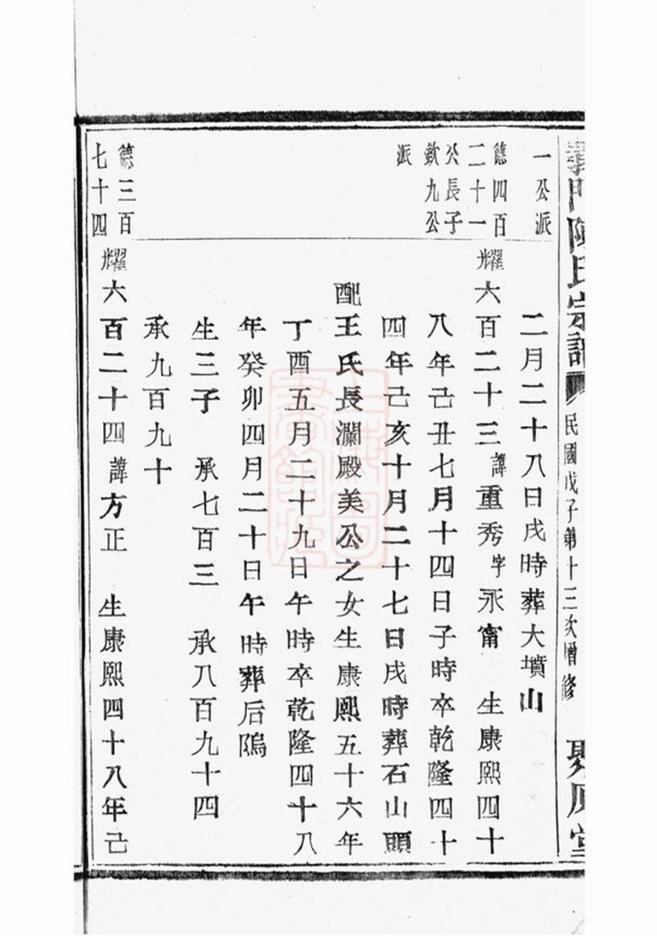 義門陳氏宗譜 民國戊子第十三次增修 聚原堂
一公派
德四百
二十一
公長子
欽九公
派
德三百
七十四
二月二十八日戌時葬大墳山
耀六百二十三 諱重秀 字永甯 生康熙四十
八年己丑七月十四日子時卒乾隆四十
四年己亥十月二十七日戌時葬石山頭
配王氏長瀾殿美公之女生康熙五十六年
丁酉五月二十九日午時卒乾隆四十八
年癸卯四月二十日午時葬后隝
生三子 承七百三 承八百九十四
承九百九十
耀六百二十四 諱方正 生康熙四十八年己